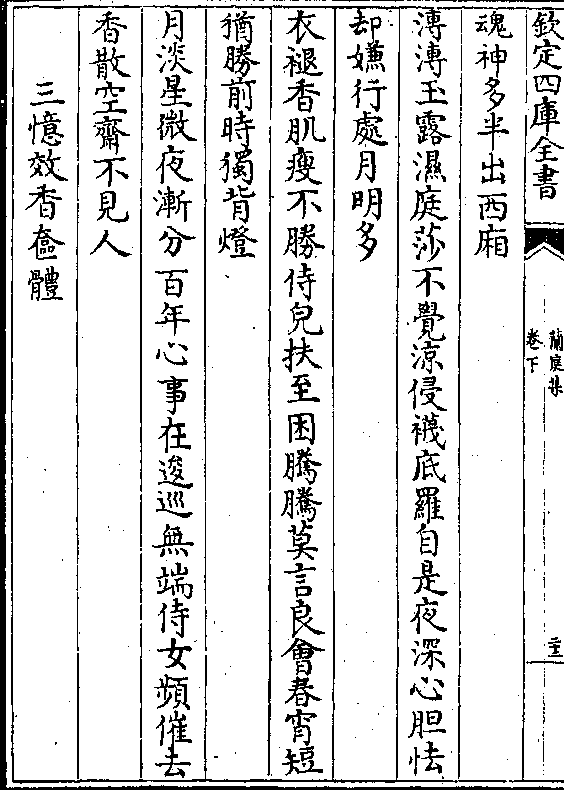 欽定四庫全書
蘭庭集
卷下
二十三
魂神多半出西廂
漙漙玉露濕庭莎不覺涼侵襪底羅自是夜深心胆怯
却嫌行處月明多
衣褪香肌瘦不勝侍兒扶至困騰騰莫言良會春宵短
猶勝前時獨背燈
月淡星微夜漸分百年心事在逡巡無端侍女頻催去
香散空齋不見人
三憶效香奩體